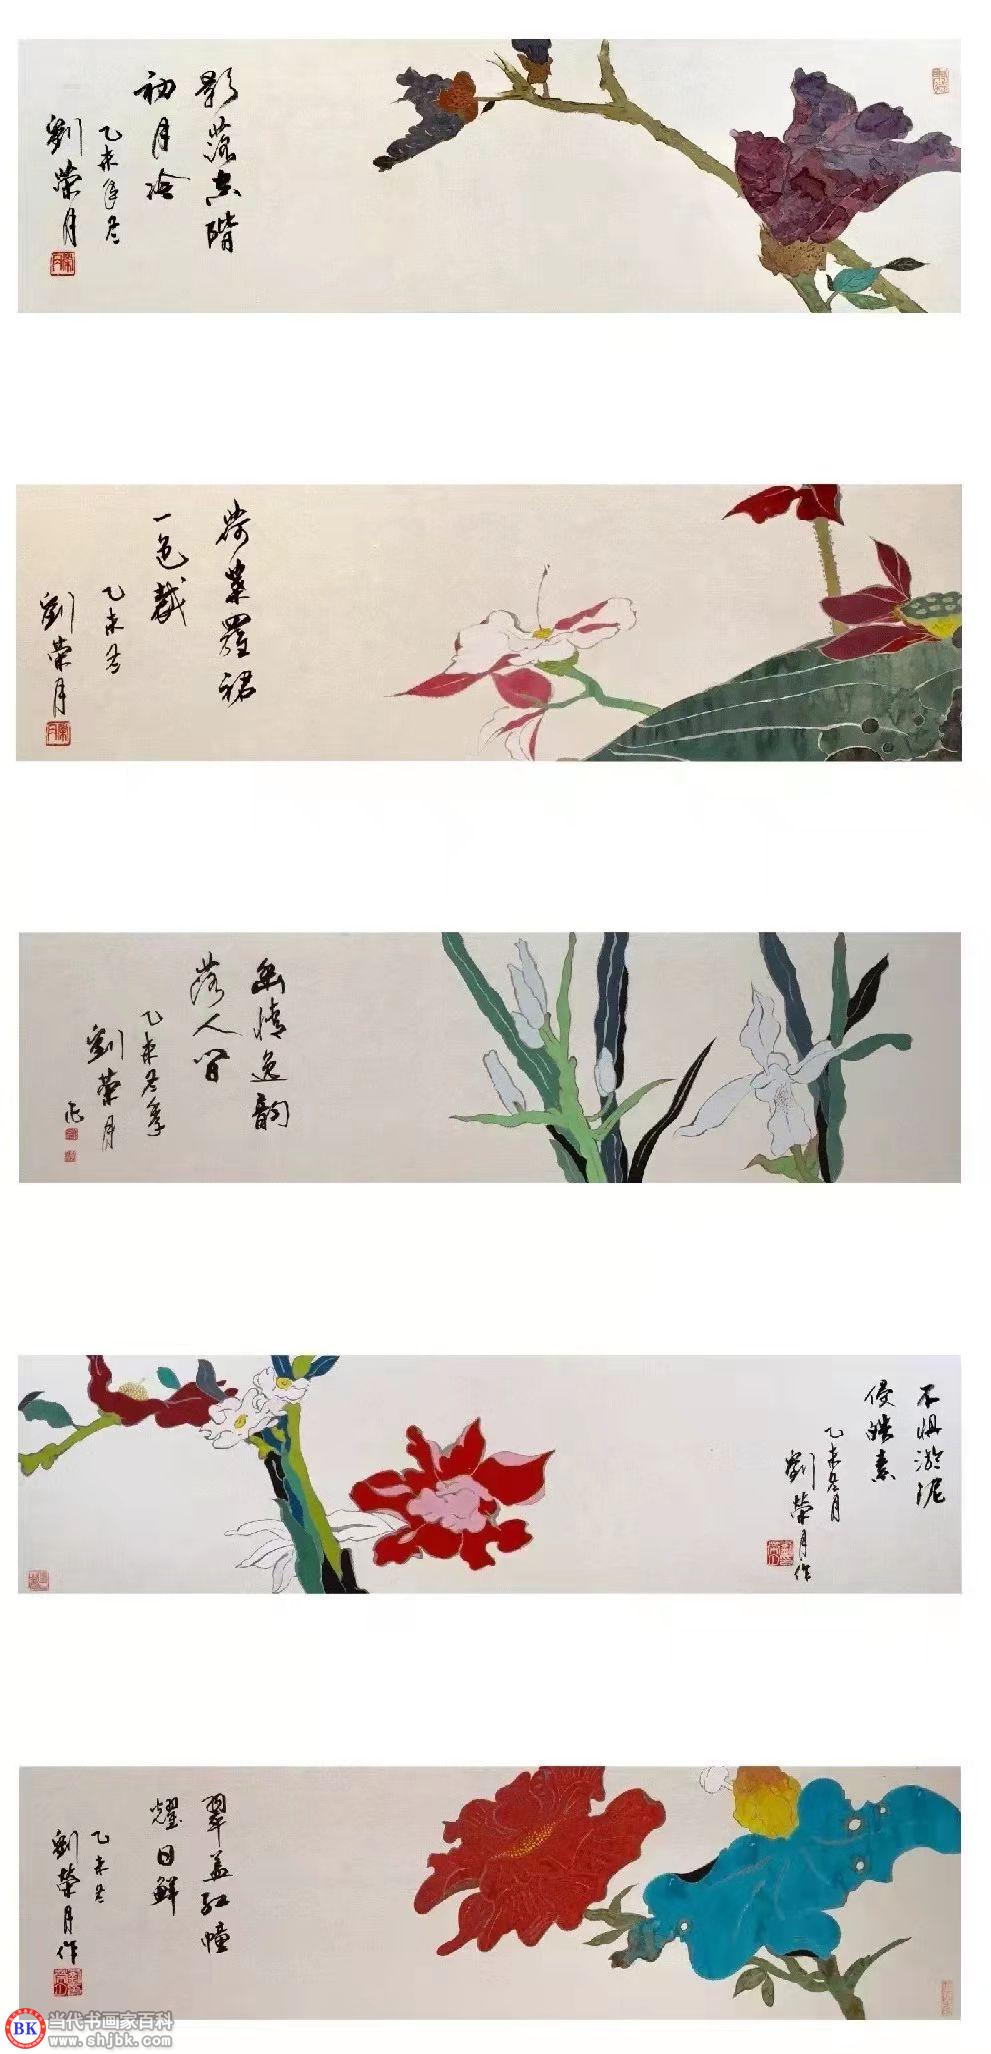 影落空階
初月冷
乙未年冬
劉榮月
荷葉羅裙
一色裁
乙未冬
劉榮月
幽情逸韵
落人間
乙未冬季
劉榮月
作
不惧淤泥
侵皓素
乙未冬月
劉榮月作
翠盖红幢
耀日鮮
乙未冬
劉榮月作
BK 当代书画家百科
www.shjbk.com